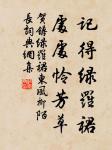 記得綠羅裙
處處憐芳草
賀鑄綠羅裙東風柳陌
長詞興網集